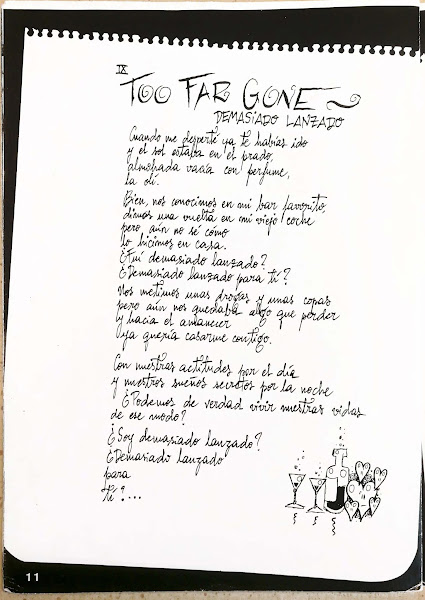 IX
TOO FAR GONE
DEMASIADO LANZADO
Cuando me desperté ya te habías ido
y el sol estaba en el prado,
almohada vacía con perfume,
la olí.
Bien, nos conocimos en mi bar favorito,
dimos una vuelta en mi viejo coche
pero, aún no sé cómo
lo hicimos en casa.
¿Fuí demasiado lanzado?
¿Demasiado lanzado para tí?
Nos metimos unas drogas y unas copas
pero aún nos quedaba algo que perder
y hacia el amanecer
ya quería casarme contigo.
Con nuestras actitudes por el día
y nuestros sueños secretos por la noche
¿Podemos de verdad vivir nuestras vidas
de ese modo?
¿Soy demasiado lanzado?
¿Demasiado lanzado
para
tí?...
11